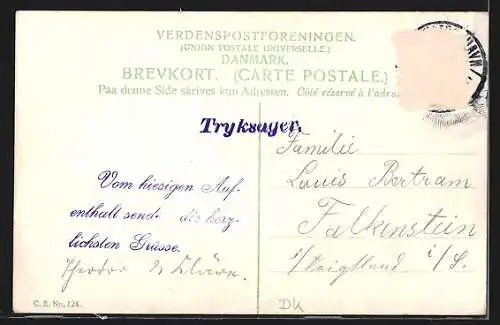 VERDENSPOSTFORENINGEN.
(UNION POSTALE UNIVERSELLE.)
DANMARK.
BREVKORT. (CARTE POSTALE.)
Paa denne Side skrives kun Adressen. Côté réservé à l'adre
Tryksager.
Familie
Louis Bertram
Falkenstein
i/Voigtland i/S.
Vom hiesigen Auf-
enthalt send. die herz-
lichsten Grüsse.
Theodor &
C. R. No. 124.
DK